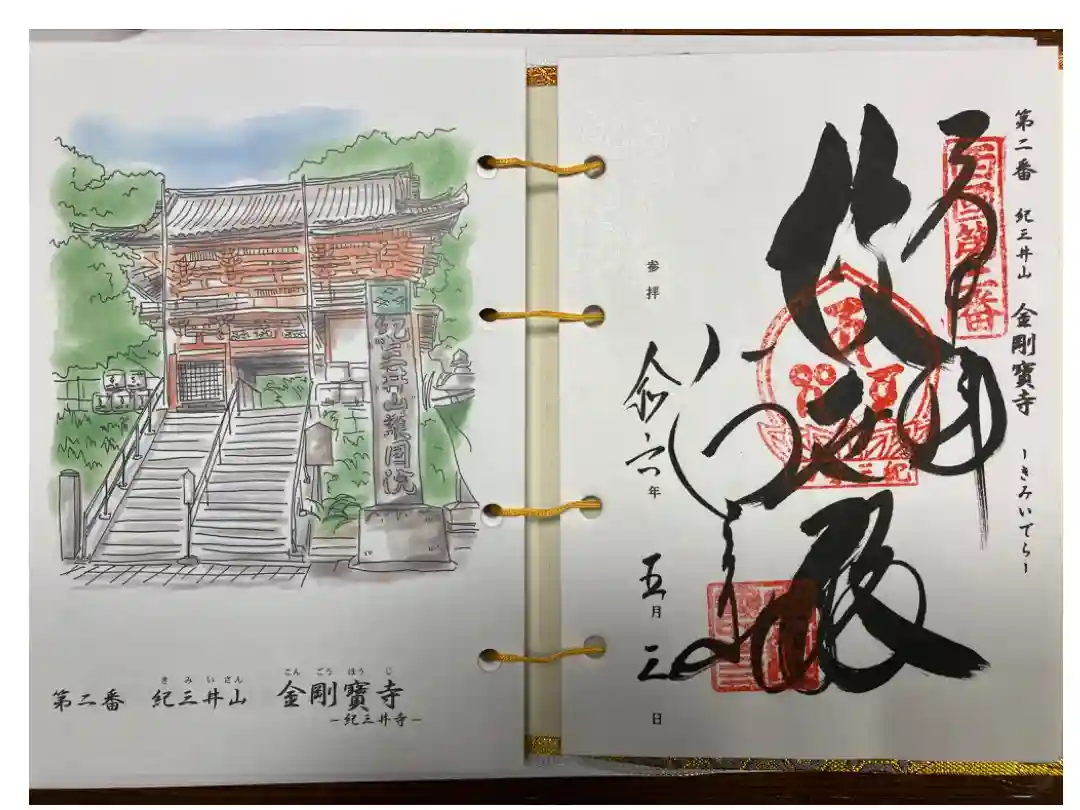 第二番 紀三井山 金剛寶寺 ーきみいでらー
西国第二番
救世殿
参拝
令六年 五月 三日
紀三井山護国院
きみいさん こんごうほうじ
第二番 紀三井山 金剛寶寺
－紀三井寺－